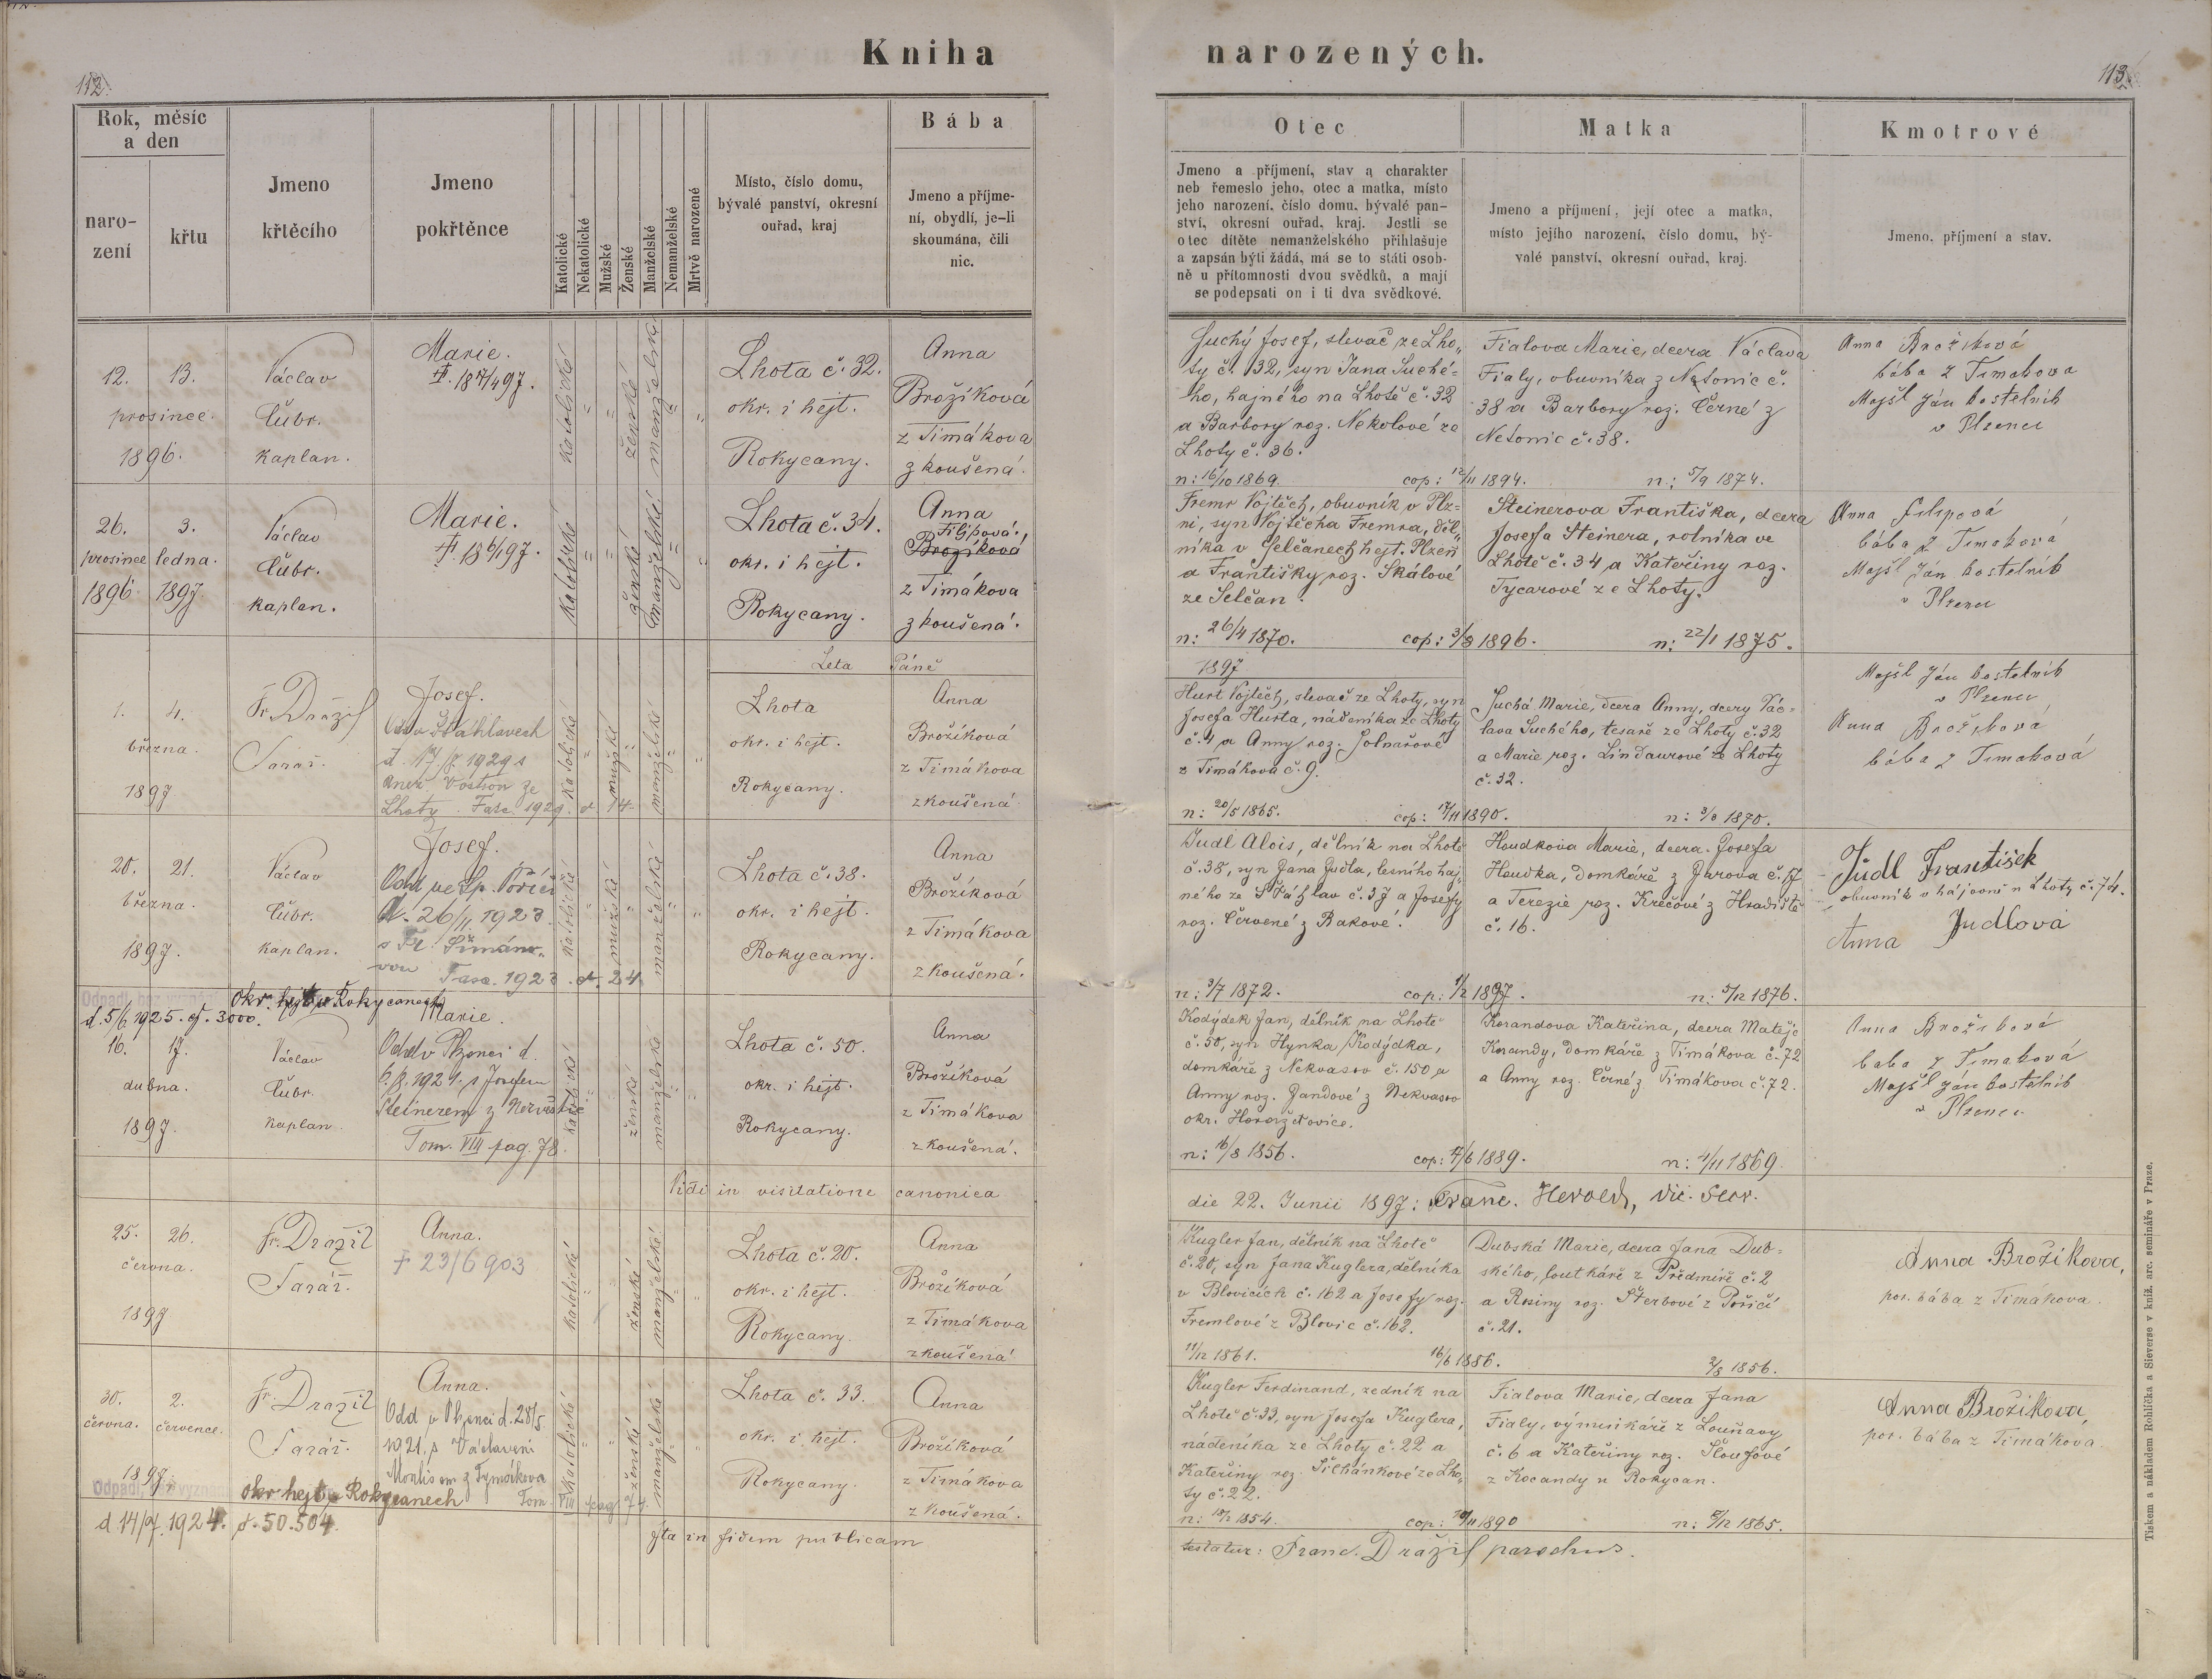 Kniha narozených.
112.
113.
Rok, měsíc
a den
naro-
zení
křtu
Jmeno
křtěcího
Jmeno
pokřtěnce
Katolické
Nekatolické
Mužské
Ženské
Manželské
Nemanželské
Mrtvě narozené
Místo, číslo domu,
bývalé panství, okresní
ouřad, kraj
Bába
Jmeno a příjme-
ní, obydlí, je-li
skoumána, čili
nic.
Otec
Jmeno a příjmení, stav a charakter
neb řemeslo jeho, otec a matka, místo
jeho narození, číslo domu, bývalé pan-
ství, okresní ouřad, kraj. Jestli se
otec dítěte nemanželského přihlašuje
a zapsán býti žádá, má se to státi osob-
ně u přítomnosti dvou svědků, a mají
se podepsati on i ti dva svědkové.
Matka
Jmeno a příjmení, její otec a matka,
místo jejího narození, číslo domu, bý-
valé panství, okresní ouřad, kraj.
Kmotrové
Jmeno, příjmení a stav.
12. 13.
prosince.
1896.
Václav
Čubr.
kaplan.
Marie.
katolické
ženské
manželské
Lhota č. 32.
okr. i hejt.
Rokycany.
Anna
Brožíková
z Timákova
zkoušená.
Suchý Josef, slevač ze Lho„
ty č. 32, syn Jana Suché=
ho, hajného na Lhotě č. 32
a Barbory roz. Nekolové ze
Lhoty č. 36.
n: 16/10 1869. cop: 12/11 1894.
Fialova Marie, dcera Václava
Fialy, obuvníka z Netonic č.
38 a Barbory roz. Černé z
Netonic č. 38.
n: 5/9 1874.
Anna Brožiková
bába z Timakova
Majšl Ján kostelnik
v Plzenci
26. 3.
prosince ledna.
1896. 1897.
Václav
Čubr.
kaplan.
Marie.
katolické
ženské
manželské
Lhota č. 34.
okr. i hejt.
Rokycany.
Anna
Filipová.
Brožíková
z Timákova
zkoušená.
Fremr Vojtěch, obuvník v Plz=
ni, syn Vojtěcha Fremra, děl„
níka v Selčanech hejt. Plzeň
a Františky roz. Skálové
ze Selčan.
n: 26/4 1870. cop: 3/8 1896.
Steinerova Františka, dcera
Josefa Steinera, rolníka ve
Lhotě č. 34 a Kateřiny roz.
Tycarové ze Lhoty.
n: 22/1 1875.
Anna Filipová
bába z Timaková
Majšl Ján kostelnik
v Plzenci
Leta Páně 1897
1. 4.
března.
1897
Fr. Dražil
Farář.
Josef.
Odd. v Šťáhlavech
1929 s
Lhoty. Fasc. 1929. č. 14
katolické
mužské
manželské
Lhota
okr. i hejt.
Rokycany.
Anna
Brožíková
z Timákova
zkoušená
Hurt Vojtěch, slevač ze Lhoty, syn
Josefa Hurta, nádeníka ze Lhoty
č. 4 a Anny roz. Solnařové
z Timákova č. 9.
n: 20/5 1865. cop: 17/11 1890.
Suchá Marie, dcera Anny, dcery Vác=
lava Suchého, tesaře ze Lhoty č. 32
a Marie roz. Lindaurové ze Lhoty
č. 32.
n: 3/8 1870.
Majšl Ján kostelnik
v Plzenci
Anna Brožiková
bába z Timaková
20. 21.
března.
1897.
Václav
Čubr.
kaplan.
Josef.
Odd. ve Sp. Poříčí
d. 26/11. 1923.
s Fr. Šimáno-
vou Fasc. 1923. č. 24
katolické
mužské
manželské
Lhota č. 38.
okr. i hejt.
Rokycany.
Anna
Brožíková
z Timákova
zkoušená.
Judl Alois, dělník na Lhotě
č. 38, syn Jana Judla, lesního haj„
ného ze Šťáhlav č. 37 a Josefy
roz. Červené z Rakové.
n: 3/7 1872. cop: 1/2 1897.
Houdkova Marie, dcera Josefa
Houdka, domkáře z Žďírova č. 57
a Terezie roz. Krečové z Hradiště
č. 16.
n: 5/12 1876.
Judl František
obuvník v hájovně u Lhoty č. 74.
Anna Judlová
okr. hejt. v Rokycanech
d. 5/6 1925. č. 3000.
16. 17.
dubna.
1897.
Václav
Čubr.
kaplan.
Marie.
Odd. v Plzenci d.
1921. s Josefem
Steinerem z
Tom. VIII pag. 78.
katolické
ženské
manželské
Lhota č. 50.
okr. i hejt.
Rokycany.
Anna
Brožíková
z Timákova
zkoušená.
Kodýdek Jan, dělník na Lhotě
č. 50, syn Hynka Kodýdka,
domkáře z Nekvasov č. 150 a
Anny roz. Jandové z Nekvasov
okr. Horažďovice.
n: 16/8 1856. cop: 17/6 1889.
Korandova Kateřina, dcera Matěje
Korandy, domkáře z Timákova č. 72
a Anny roz. Černé z Timákova č. 72.
n: 4/11 1869.
Anna Brožiková
baba z Timaková
Majšl Ján kostelnik
v Plzenci
Vidi in visitatione canonica
die 22. Junii 1897: Franc. Herold, vic. Secr.
25. 26.
června.
1897
Fr. Dražil
Farář.
Anna.
† 23/6 903
katolické
ženské
manželské
Lhota č. 20.
okr. i hejt.
Rokycany.
Anna
Brožíková
z Timákova
zkoušená
Kugler Jan, dělník na Lhotě
č. 20, syn Jana Kuglera, dělníka
v Blovicích č. 162 a Josefy roz.
Fremlové z Blovic č. 162.
11/12 1861. 16/6 1886.
Dubská Marie, dcera Jana Dub=
ského, loutkáře z Předmíře č. 2
a Rosiny roz. Šterbové z Poříčí
č. 21.
2/8 1856.
Anna Brožikova,
por. bába z Timákova.
30. 2.
června. července.
1897.
Fr. Dražil
Farář.
Anna.
Odd v Plzenci d. 28/5
1921, s Václavem
z Tymákova
Tom. VIII pag. 74.
katolické
ženské
manželské
Lhota č. 33.
okr. i hejt.
Rokycany.
Anna
Brožíková
z Timákova
zkoušená.
Kugler Ferdinand, zedník na
Lhotě č. 33, syn Josefa Kuglera,
nádeníka ze Lhoty č. 22 a
Kateřiny roz. Šilhánkové ze Lho„
ty č. 22.
n: 18/2 1854. cop: 18/11 1890
Fialova Marie, dcera Jana
Fialy, výminkáře z Louňavy
č. 6 a Kateřiny roz. Šloufové
z Kocandy u Rokycan.
n: 8/12 1865.
Anna Brožikova,
por. bába z Timáková.
okr hejt v Rokycanech
1924. č. 50.504.
Ita in fidem publicam
testatur: Franc. Dražil parochus.
Tiskem a nákladem Rohlíčka a Sieverse v kníž. arc. semináře v Praze.